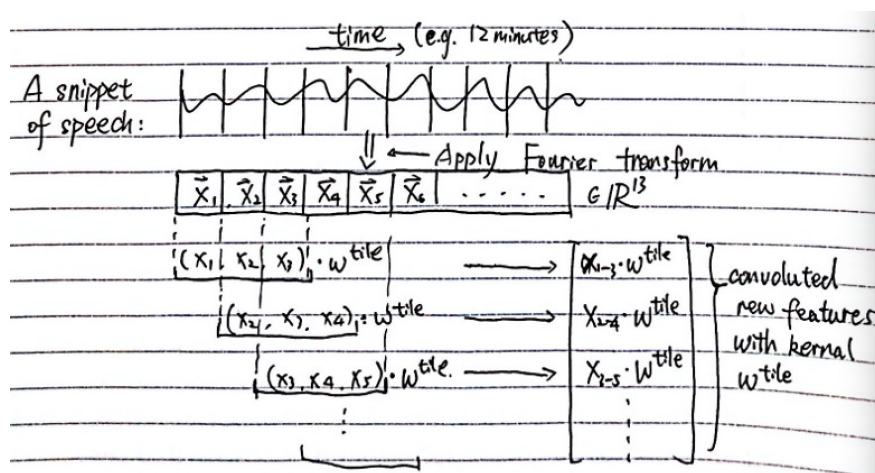 time (e.g. 12 minutes)
A snippet
of speech:
Apply Fourier transform
x⃗₁ x⃗₂ x⃗₃ x⃗₄ x⃗₅ x⃗₆ ..... ∈ ℝ¹³
(x₁, x₂, x₃) · w^tile → x₁₋₃ · w^tile
(x₂, x₃, x₄) · w^tile → x₂₋₄ · w^tile
(x₃, x₄, x₅) · w^tile. → x₃₋₅ · w^tile
convoluted
new features
with kernal
w^tile